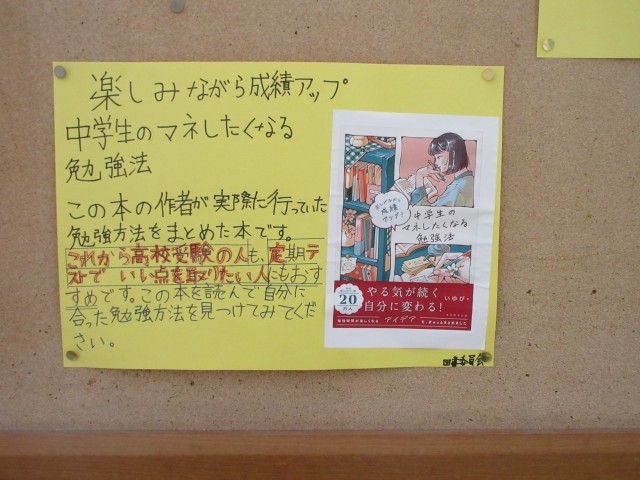 楽しみながら成績アップ
中学生のマネしたくなる
勉強法
この本の作者が実際に行っていた
勉強方法をまとめた本です。
これから高校受験の人も、定期テ
ストで いい点を取りたい人にもおす
すめです。この本を読んで自分に
合った勉強方法を見つけてみてくだ
さい。
成績
アップ!
中学生の
マネしたくなる
勉強法
20
やる気が続く
自分に変わる!
いゆぴ
アイデア
図書委員会